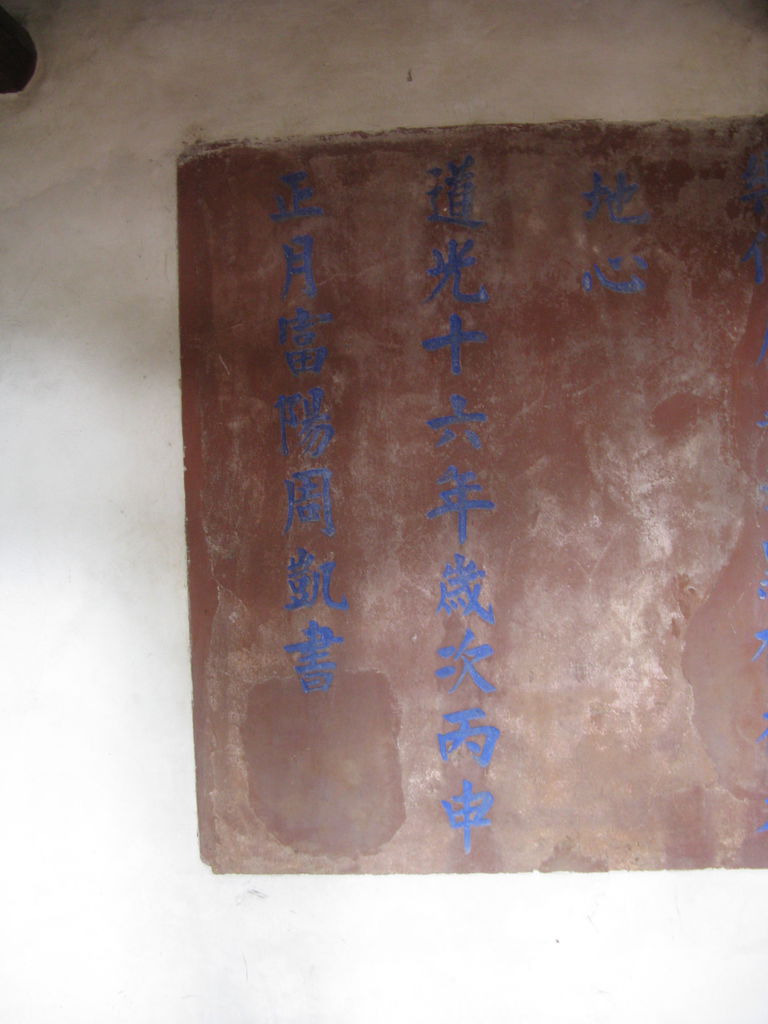 地心
道光十六年歲次丙申
正月富陽周凱書